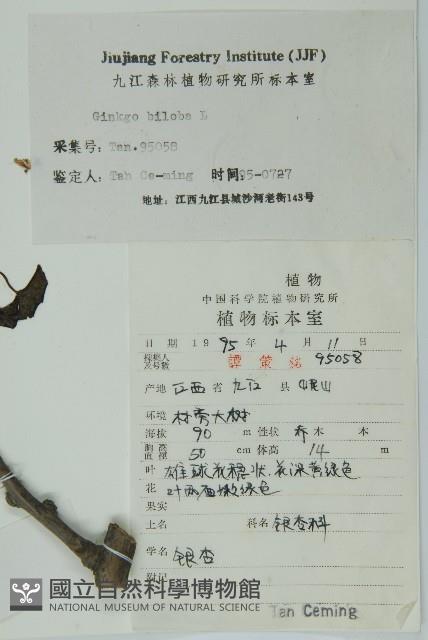 Jiujiang Forestry Institute (JJF)
九江森林植物研究所标本室
Ginkgo biloba L
采集号: Tan.95058
鉴定人: Tan Ce-ming 时间:95-0727
地址: 江西九江县城沙河老街143号
植物
中国科学院植物研究所
植物标本室
日期 1995年4月11日
採集人及号数 譚策銘 95058
产地 江西省九江县岷山
环境 村旁大树
海拔 90 m 性状 乔木 本
胸高直徑 50 cm 体高 14 m
叶 雄球花穗状,花深黄绿色
花 叶两面嫩绿色
果实
土名 科名 银杏科
学名 银杏
附記
Tan Ceming
國立自然科學博物館
NATIONAL MUSEUM OF NATURAL SCIENCE